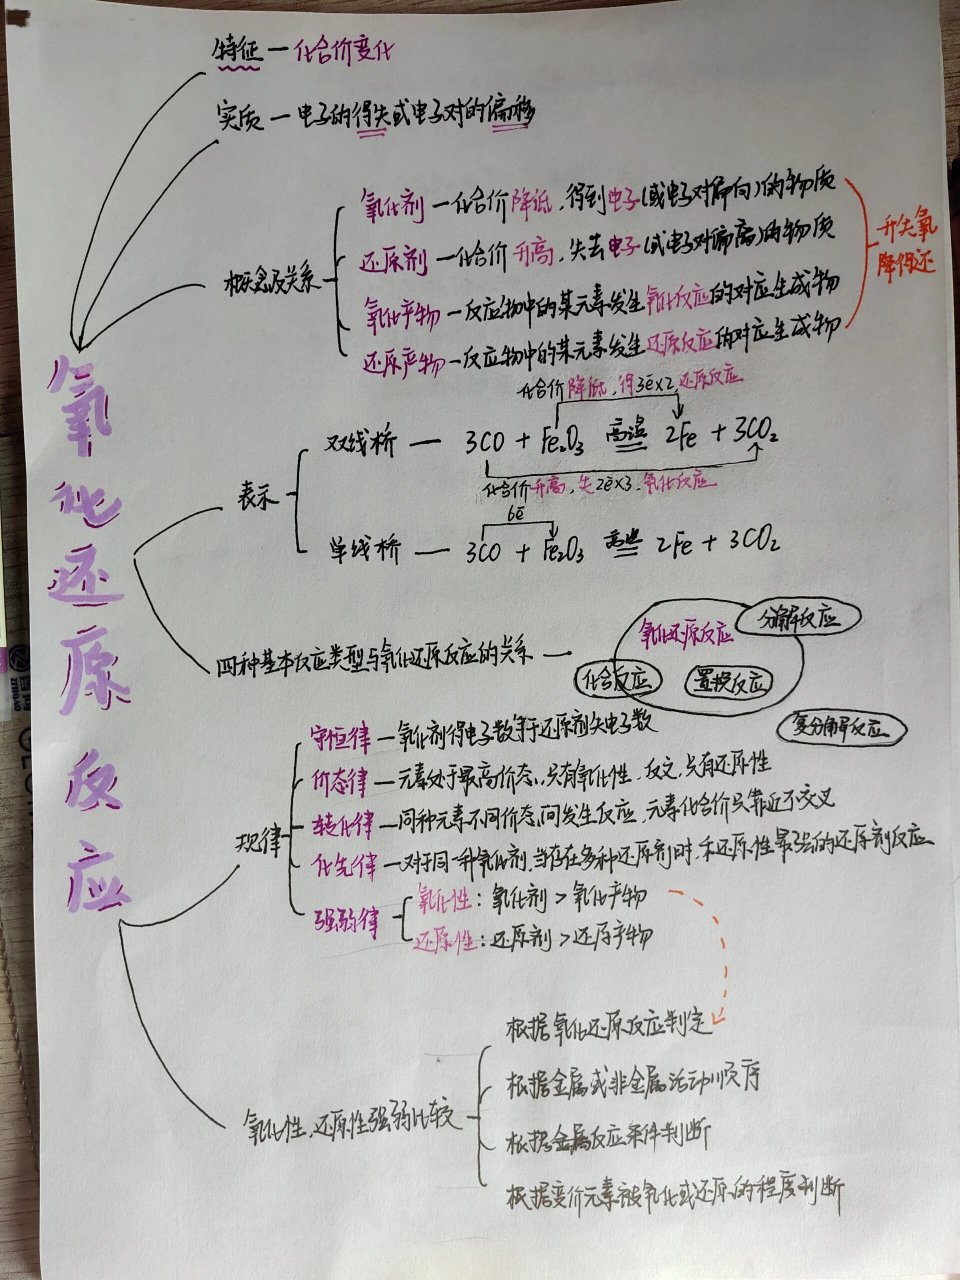 氧化还原反应
特征 — 化合价变化
实质 — 电子的得失或电子对的偏移
概念及关系
氧化剂 — 化合价降低,得到电子(或电子对偏向)的物质
还原剂 — 化合价升高,失去电子(或电子对偏离)的物质
氧化产物 — 反应物中的某元素发生氧化反应的对应生成物
还原产物 — 反应物中的某元素发生还原反应的对应生成物
升失氧
降得还
表示
化合价降低,得3e̅×2,还原反应
双线桥 — 3CO + Fe₂O₃ 高温 2Fe + 3CO₂
化合价升高,失2e̅×3,氧化反应
6e̅
单线桥 — 3CO + Fe₂O₃ 高温 2Fe + 3CO₂
四种基本反应类型与氧化还原反应的关系 —
氧化还原反应
分解反应
化合反应
置换反应
复分解反应
规律
守恒律 — 氧化剂得电子数等于还原剂失电子数
价态律 — 元素处于最高价态,只有氧化性,反之,只有还原性
转化律 — 同种元素不同价态间发生反应,元素化合价只靠近不交叉
优先律 — 对于同一种氧化剂,当存在多种还原剂时,和还原性最强的还原剂反应
强弱律
氧化性:氧化剂 > 氧化产物
还原性:还原剂 > 还原产物
氧化性、还原性强弱比较
根据氧化还原反应判定
根据金属或非金属活动顺序
根据金属反应条件判断
根据变价元素被氧化或还原的程度判断